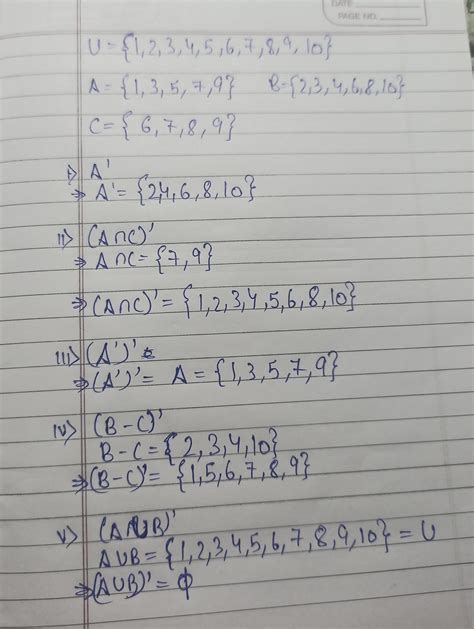 DATE
PAGE NO.
U = {1,2,3,4,5,6,7,8,9,10}
A = {1,3,5,7,9} B={2,3,4,6,8,10}
C = { 6,7,8,9}
i> A'
⇒ A' = {2,4,6,8,10}
ii> (A∩C)'
⇒ A∩C = {7,9}
⇒ (A∩C)' = {1,2,3,4,5,6,8,10}
iii> (A')'
⇒ (A')' = A = {1,3,5,7,9}
iv> (B-C)'
B-C = {2,3,4,10}
⇒ (B-C)' = {1,5,6,7,8,9}
v> (A∪B)'
A∪B = {1,2,3,4,5,6,7,8,9,10} = U
⇒ (A∪B)' = ϕ